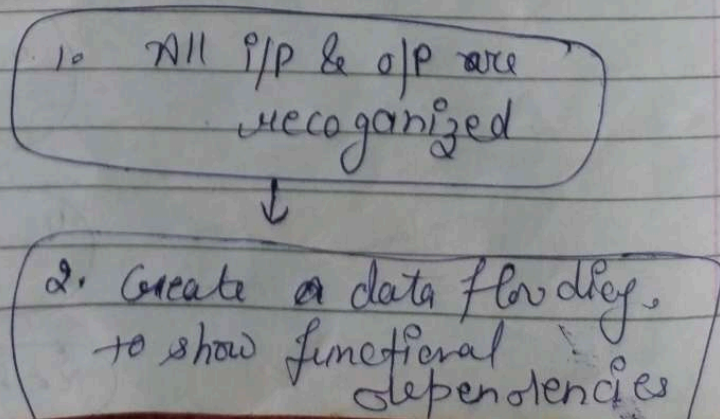 1. All i/p & o/p are
recoganized
2. Create a data flow diag.
to show functional
dependencies